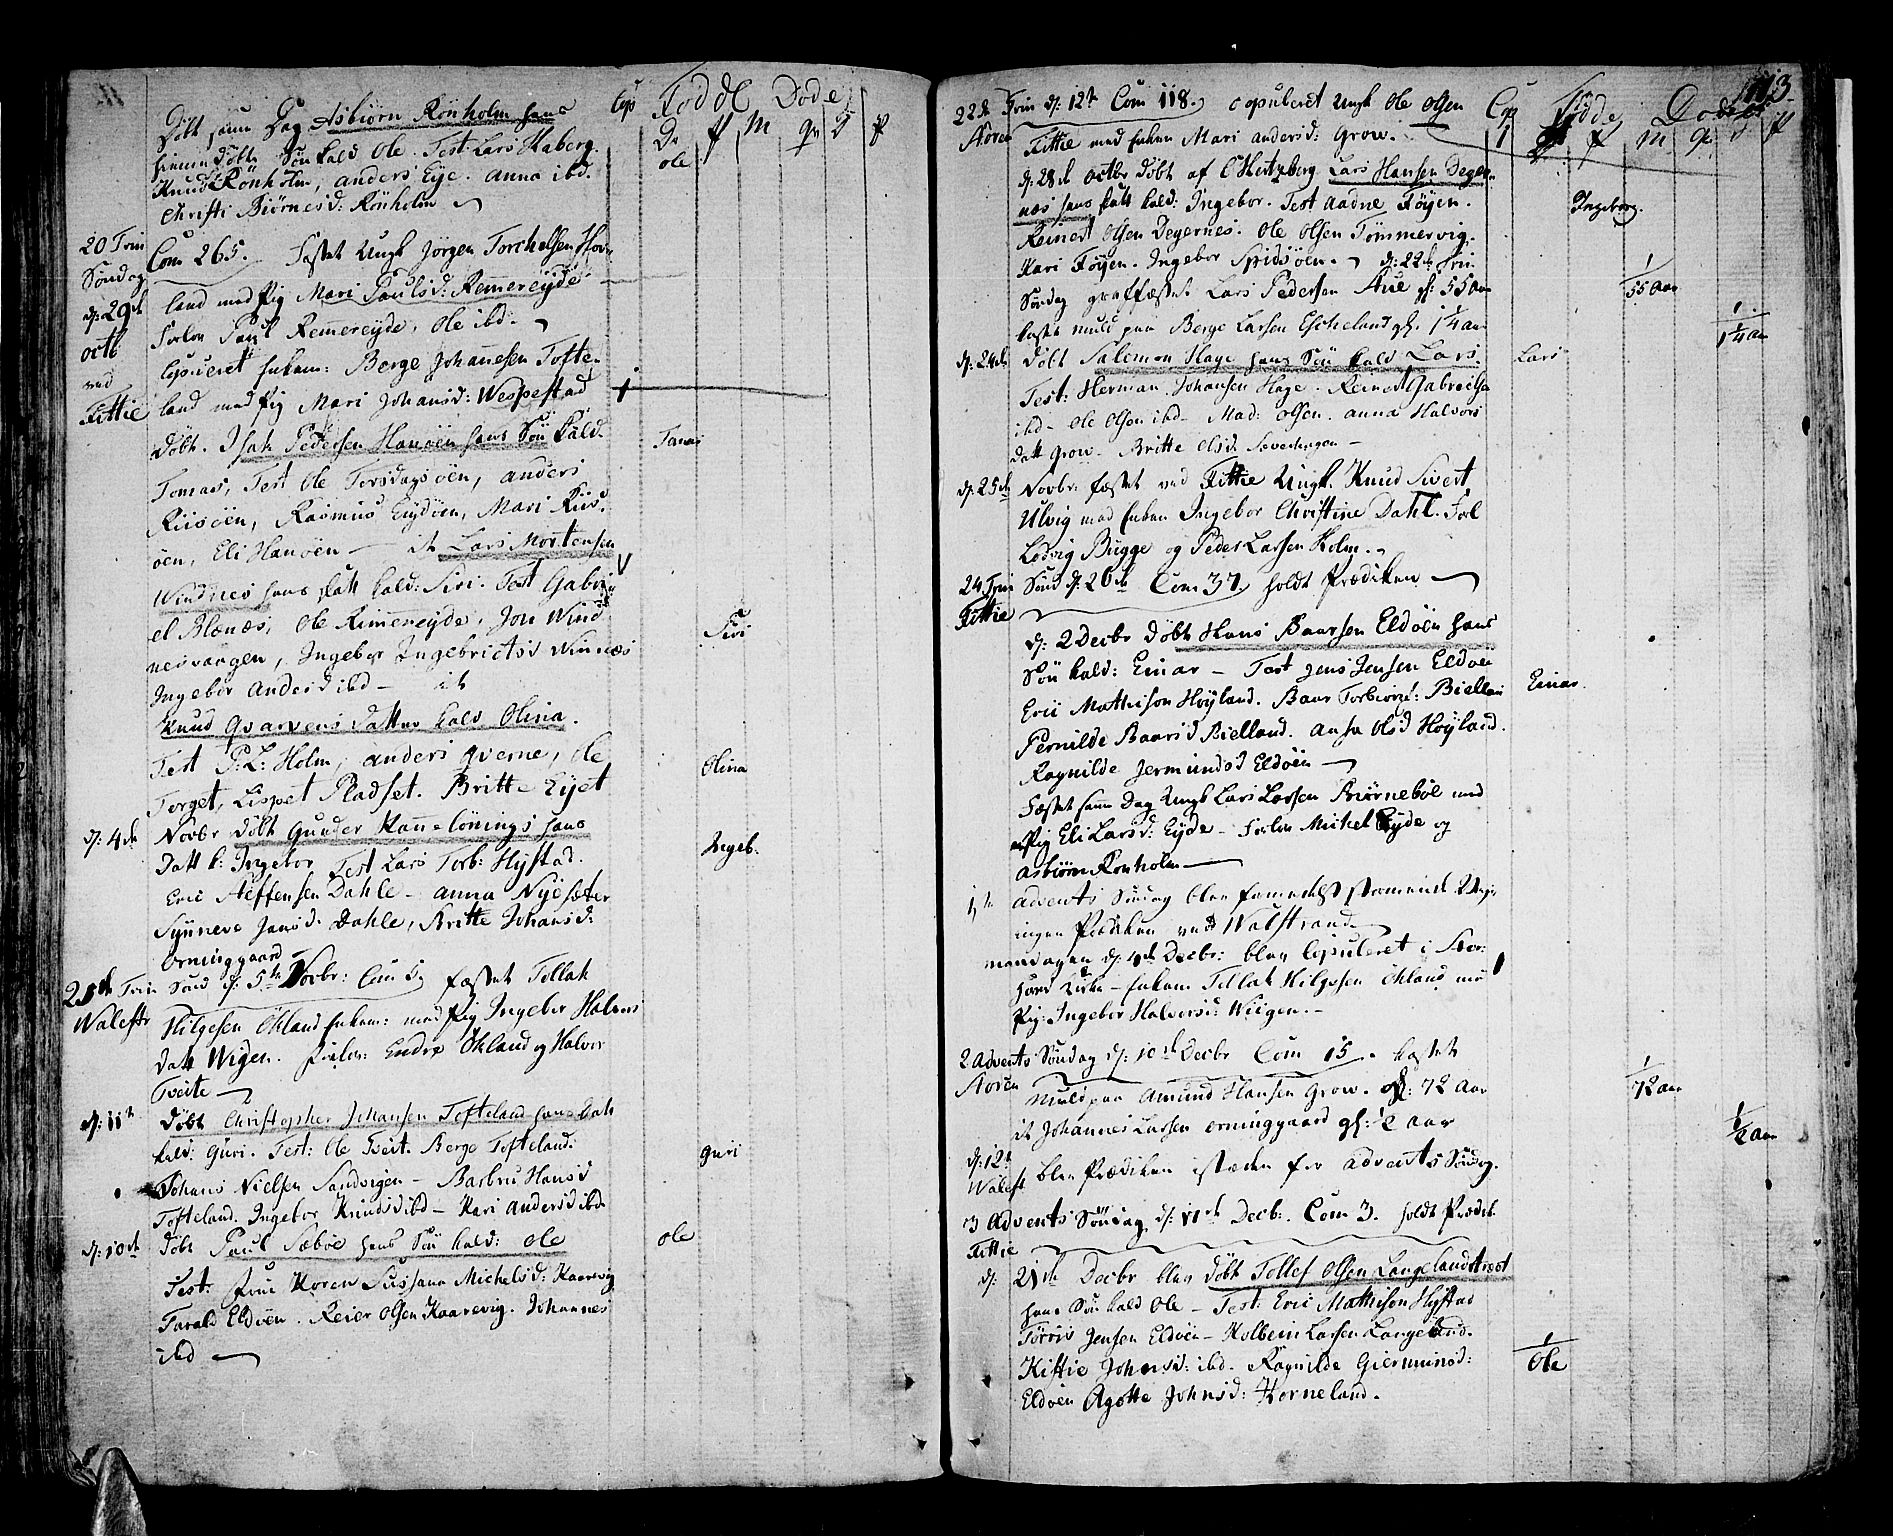 Cop Fødde Døde
Dr f M qv D f
Døbt samme Dag Asbiørn Rønholm hans
hiemmedøbte Søn kald Ole. Test Lars Haberg. ole
Knud Rønholm, anders Eye. anna ibd.
Christi Biørnesd: Rønholm
20 Trin Com 265. Fæstet Ungk Jørgen Torchelsen Hov-
Søndag land med Pig Mari Paulsd: Remereyde
d: 29de Forlov Paul Remereyde, Ole ibd.
octb Copuleret Enkem: Berge Johannesen Tofte-
ved land med Pig Mari Johansd: Wespestad 1
Fittie
Døbt. Isak Pedersen Hanøen hans Søn kald. Tomas
Tomas, Test Ole Torsdagsøen, anders
Riisøen, Rasmus Engøen, Mari Riis-
øen, Eli Hanøen – it Lars Mortensen
Windnes hans datt kald: Siri. Test Gabri-
el Blænæs, Ole Rimereyde, Jon Wind- Siri
nesvaagen, Ingebor Ingebrictsd Winnæs
Ingebor Andersd ibd – it
Knud Qvarvens datter kald Olina.
Test P. L: Holm, anders qverne, Ole Olina
Torget, Lispet Pladset. Britte Eyet
d: 4de Novbr Døbt Gunder Kannelønings hans
Datt k: Ingebor Test Lars Torb: Hystad. Ingeb.
Eric Steffensen Dahle – anna Nysæter
Synneve Jansd. Dahle, Britte Johansd:
Orninggaard
21de Trin Sønd d: 5te Novbr: Com 5, fæstet Tollak
Walestr Hilgesen Økland Enkem: med Pig Ingebor Halvors
datt Wigen. Forlov: Endre Økland og Halvor
Tveite
d: 11te Døbt Christopher Johansen Tofteland hans Datt
kald: Guri. Test: Ole Tveit. Berge Tofteland. guri
Johans Nielsen Sandvigen – Barbru Hansd
Tofteland. Ingebor Knudsd ibd – Kari Andersd ibd
d: 10de Døbt Paul Sæbøe hans Søn kald: Ole ole
Test: Frue Koren Sussana Michelsd: Kaarevig
Tarald Eldøen. Reier Olsen Kaarevig. Johannes
ibd
113.
Cop Fødde Døde
f M qv D f
22de Trin d: 12te Com 118. Copuleret Ungk Ole Olsen
Støren Fittie med Enken Mari andersd: Grow. 1
d: 28de octbr Døbt af C Hertzberg Lars Hansen Deger-
næs hans datt kald: Ingebor. Test Aadne Føyen. Ingeborg.
Reinert Olsen Degernes. Ole Olsen Tømmervig.
Kari Føyen. Ingebor Spidsøen. d: 22de Trin
Søndag grafffæstet Lars Pedersen Aue gl: 55 aar 1 55 Aar
kastet muld paa Berge Larsen Escheland gl. 1 1/4 aar 1 1 1/4 aar
d: 24de Døbt Salomon Hage hans Søn kald Lars. Lars
Test: Herman Johansen Hage. Reinert Gabrielse
ibd – Ole Olsen ibd – Mad: Olsen. anna Halvors
datt Grow. Britte Olsd.
d: 25de Novbr: fæstet ved Fittie Ungk. Knud Sivert
Ulvig med Enken Ingebor Christine Dahl. Forl
Lodvig Bugge og Peder Larsen Holm.
24 Trin Sønd d: 26de Com 37. holdt Prædiken
Fittie
d: 2 Decbr Døbt Hans Baarsen Eldøen hans
Søn kald: Einar – Test Jens Jensen Eldøen Einar.
Eric Mathison Høyland. Baar Torbiornse: Bielland
Pernilde Baarsd Bielland. Anna Olsd Høyland.
Ragnilde Jermundsd Eldøen
Fæstet samme Dag Ungk Lars Larsen Biørneboe med
Pig Eli Larsd: Eyde – Forlov Michel Eyde og
Asbiørn Rønholm
1te Advents Søndag blev formedelst stormende Veyr
ingen Prædiken ved Walestrand
mandagen d: 4de Decbr: blev Copuleret i Stor-
høens Kirke – Enkem Tollak Hilgesen Økland med 1
Pig: Ingebor Halversd: Wiigen. –
2 Advents Søndag d: 10de Decbr Com 15. kastet
Støren Muld paa Amund Hansen Grow. gl: 72 Aar 1 72 aar
it Johannes Larsen Orninggaard gl: 1/2 aar 1/2 aar
d: 12te
Walest blev Prædiken istæden for Advents Søndag.
3 Advents Søndag d: 17de Decb: Com 3. holdt Prædik
Fittie
d: 21de Decbr blev Døbt Tollef Olsen Langelandstræet
hans Søn kald Ole – Test: Eric Mathison Hystad
Tørris Jensen Eldøen – Kolbein Larsen Langeland.
Kistie Johnsd: ibd. Ragnilde Giermunsd: 1 Ole
Eldøen Agotte Johnsd: Horneland.